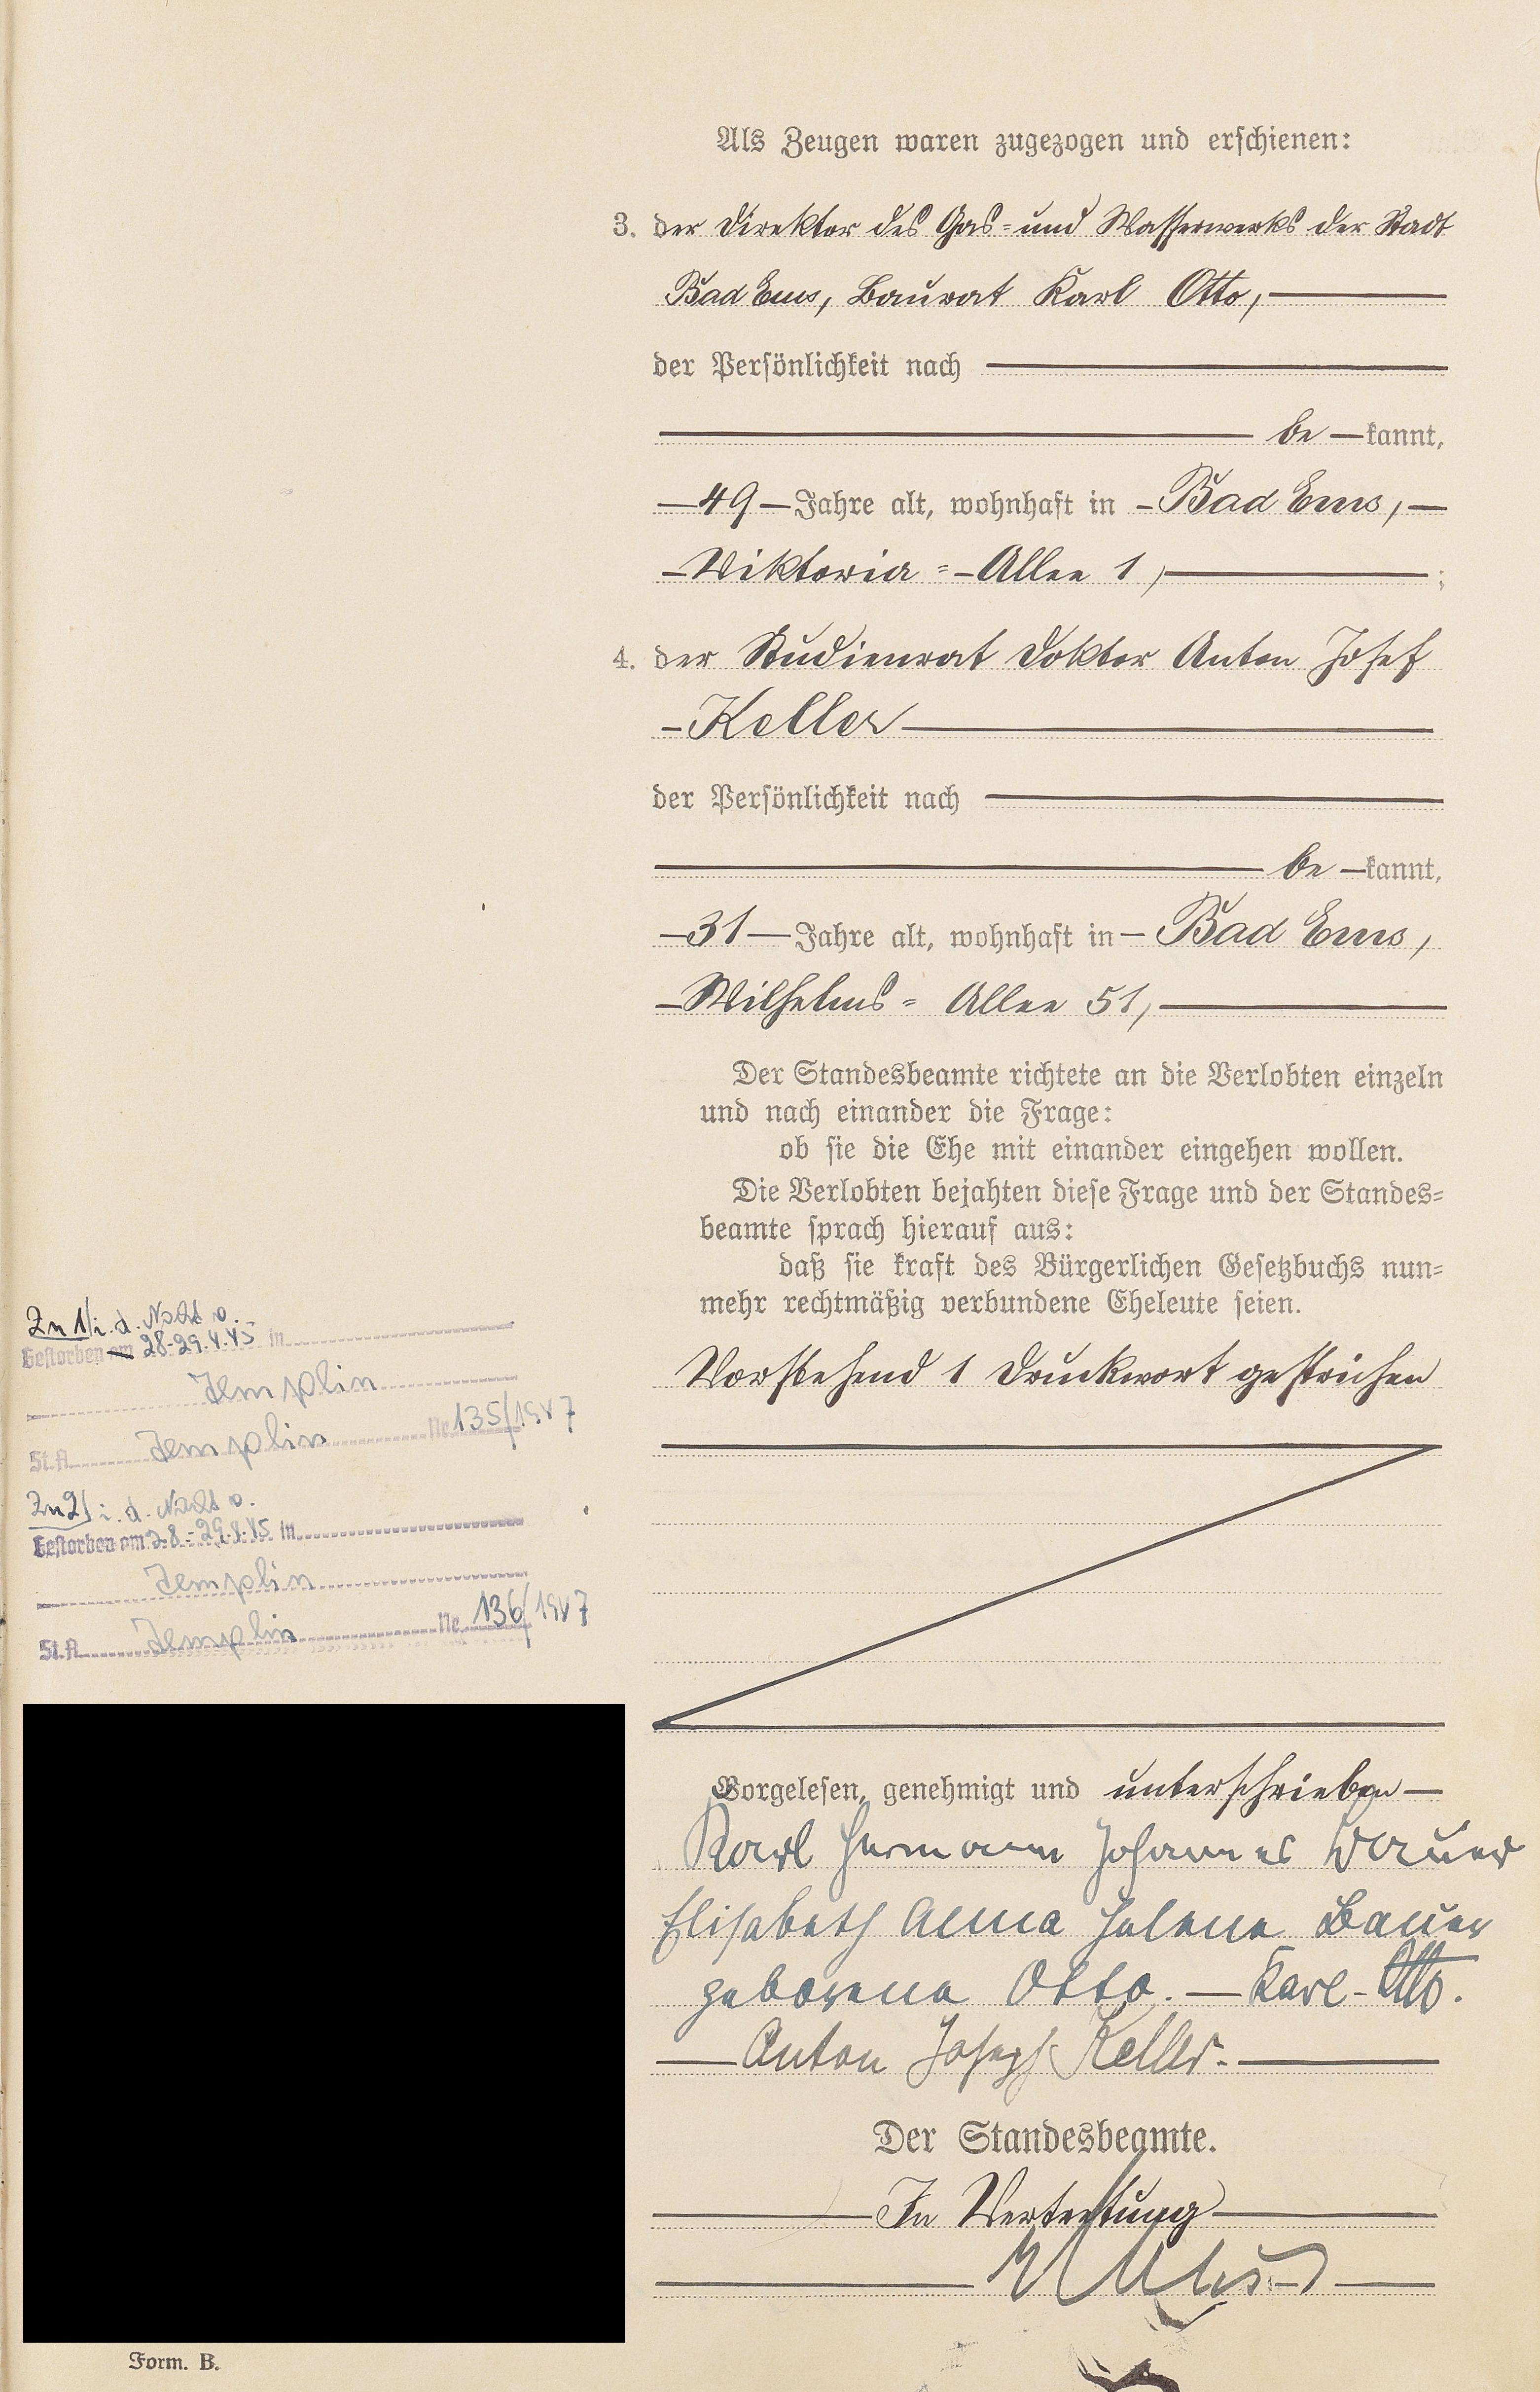 Als Zeugen waren zugezogen und erschienen:
3. der Direktor des Gas- und Wasserwerks der Stadt
Bad Ems, Baurat Karl Otto,
der Persönlichkeit nach
be kannt,
49 Jahre alt, wohnhaft in Bad Ems,
Viktoria-Allee 1, ;
4. der Studienrat Doktor Anton Josef
Keller
der Persönlichkeit nach
be kannt,
31 Jahre alt, wohnhaft in Bad Ems,
Wilhelms-Allee 51,
Der Standesbeamte richtete an die Verlobten einzeln
und nach einander die Frage:
ob sie die Ehe mit einander eingehen wollen.
Die Verlobten bejahten diese Frage und der Standes-
beamte sprach hierauf aus:
daß sie kraft des Bürgerlichen Gesetzbuchs nun-
mehr rechtmäßig verbundene Eheleute seien.
Vorstehend 1 Druckwort gestrichen
Zu 1/ i. d. Nacht v.
Gestorben am 28-29.4.45 in
Templin
St.A. Templin Nr. 135/1947
Zu 2/ i. d. Nacht v.
Gestorben am 28.-29.4.45 in
Templin
St.A. Templin Nr. 136/1947
Vorgelesen, genehmigt und unterschrieben
Karl Hermann Johannes Bauer
Elisabeth Anna Helene Bauer
geborene Otto. — Karl Otto.
Anton Joseph Keller.
Der Standesbeamte.
In Vertretung
Form. B.